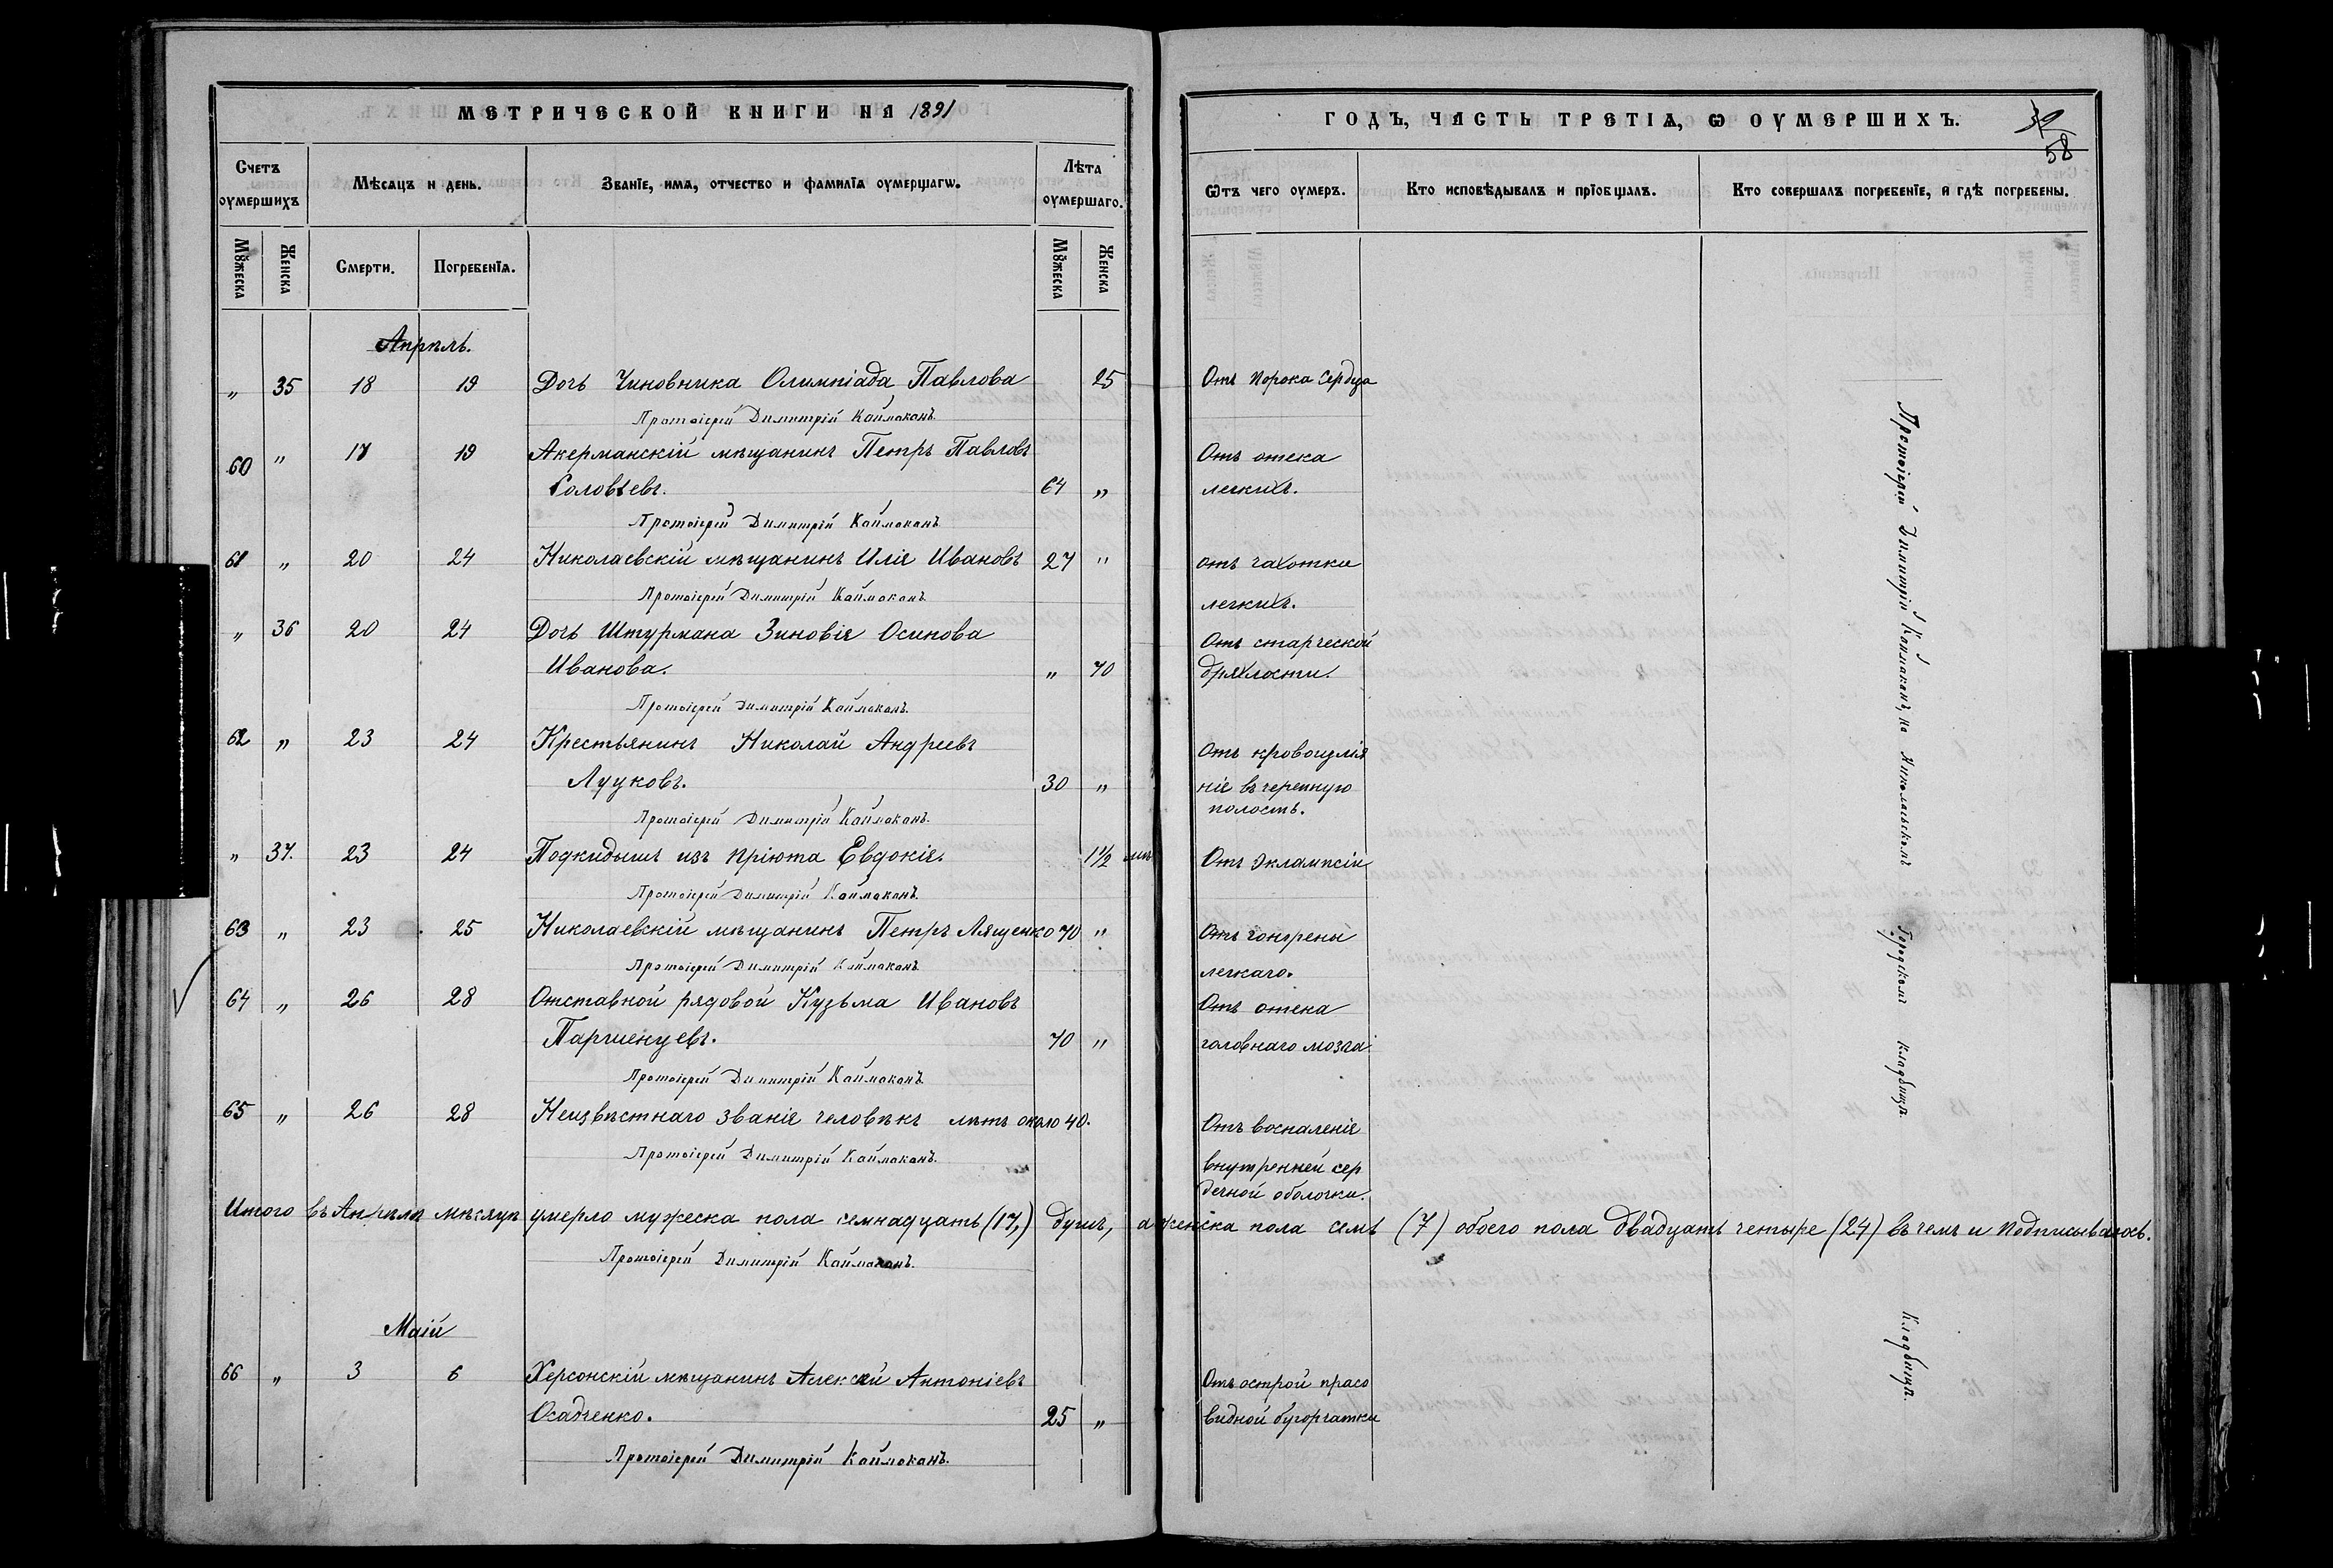 МЕТРИЧЕСКОЙ КНИГИ НА 1891
Счетъ оумершихъ
Мѣсяцъ и день.
Званїе, имѧ, отчество и фамилїѧ оумершагѡ.
Лѣта оумершаго.
Мꙋжеска
Женска
Смерти.
Погребенїѧ.
Мꙋжеска
Женска
Апрѣль.
„ 35 18 19 Дочь Чиновника Олимпіада Павлова 25
Протоіерей Димитрій Каймаканъ.
60 „ 17 19 Акерманскій мѣщанинъ Петръ Павловъ
Соловьевъ. 64 „
Протоіерей Димитрій Каймаканъ
61 „ 20 24 Николаевскій мѣщанинъ Илія Ивановъ 27 „
Протоіерей Димитрій Каймаканъ
„ 36 20 24 Дочь Штурмана Зиновія Осипова
Иванова. „ 70
Протоіерей Димитрій Каймаканъ.
62 „ 23 24 Крестьянинъ Николай Андреевъ
Луцковъ. 30 „
Протоіерей Димитрій Каймаканъ.
„ 37. 23 24 Подкидышъ изъ пріюта Евдокія. 1 1/2
Протоіерей Димитрій Каймаканъ.
63 „ 23 25 Николаевскій мѣщанинъ Петръ Лященко 70 „
Протоіерей Димитрій Каймаканъ
64 „ 26 28 Отставной рядовой Кузьма Ивановъ
70 „
Протоіерей Димитрій Каймаканъ
65 „ 26 28 Неизвѣстнаго званія человѣкъ лѣтъ около 40.
Протоіерей Димитрій Каймаканъ.
Итого въ Апрѣлѣ мѣсяцѣ умерло мужеска пола семнадцать (17,) душъ, а женска пола семь (7) обоего пола двадцать четыре (24) въ чемъ и подписываюсь.
Протоіерей Димитрій Каймаканъ.
Маій
66 „ 3 6 Херсонскій мѣщанинъ Алексѣй Антоніевъ
Осадченко. 25 „
Протоіерей Димитрій Каймаканъ.
ГОДЪ, ЧАСТЬ ТРЕТІѦ, Ѡ ОУМЕРШИХЪ.
58
Ѿтъ чего оумеръ.
Кто исповѣдывалъ и прїобщалъ.
Кто совершалъ погребенїе, и гдѣ погребены.
Отъ порока сердца
Отъ отека
легкихъ.
отъ чахотки
легкихъ.
Отъ старческой
дряхлости.
Отъ кровоизлія
ніе въ черепную
полость.
Отъ Эклампсіи
Отъ гангрены
легкаго.
Отъ отека
головнаго мозга
Отъ воспаленія
внутренней сер
дечной оболочки.
Отъ острой просо
видной бугорчатки
Протоіерей Димитрій Каймаканъ, на Николаевскомъ Городскомъ кладбищѣ
Кладбищѣ.